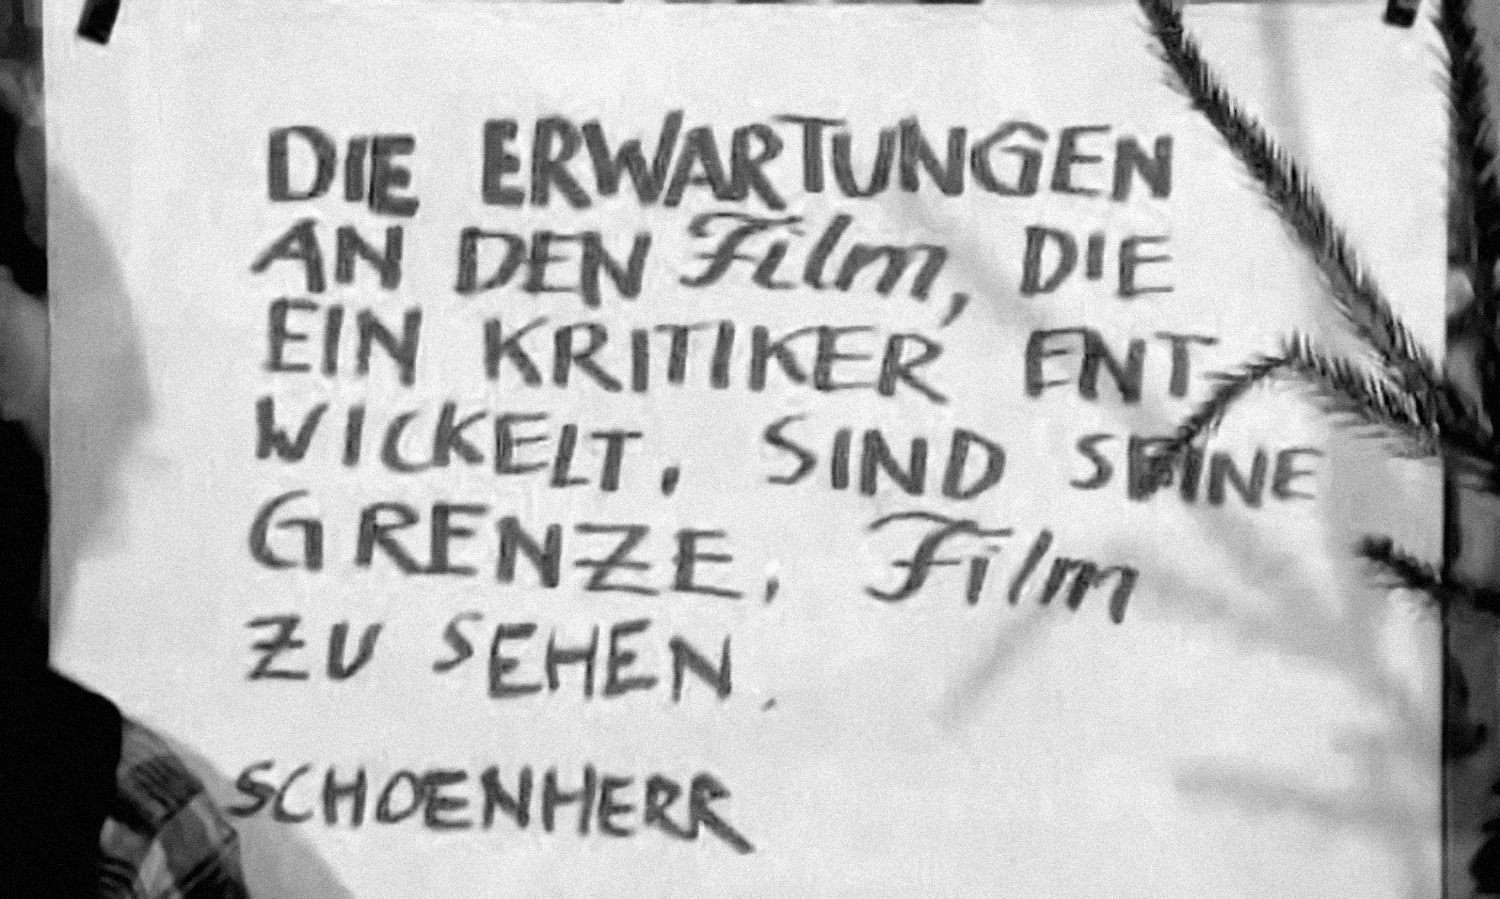 DIE ERWARTUNGEN
AN DEN Film, DIE
EIN KRITIKER ENT
WICKELT, SIND SEINE
GRENZE, Film
ZU SEHEN.
SCHOENHERR